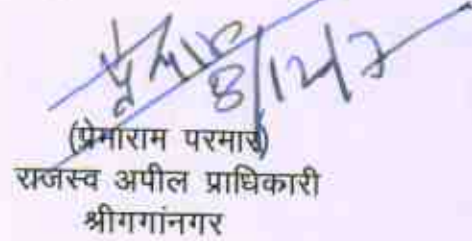 8/12/7
(प्रेमाराम परमार)
राजस्व अपील प्राधिकारी
श्रीगगांनगर